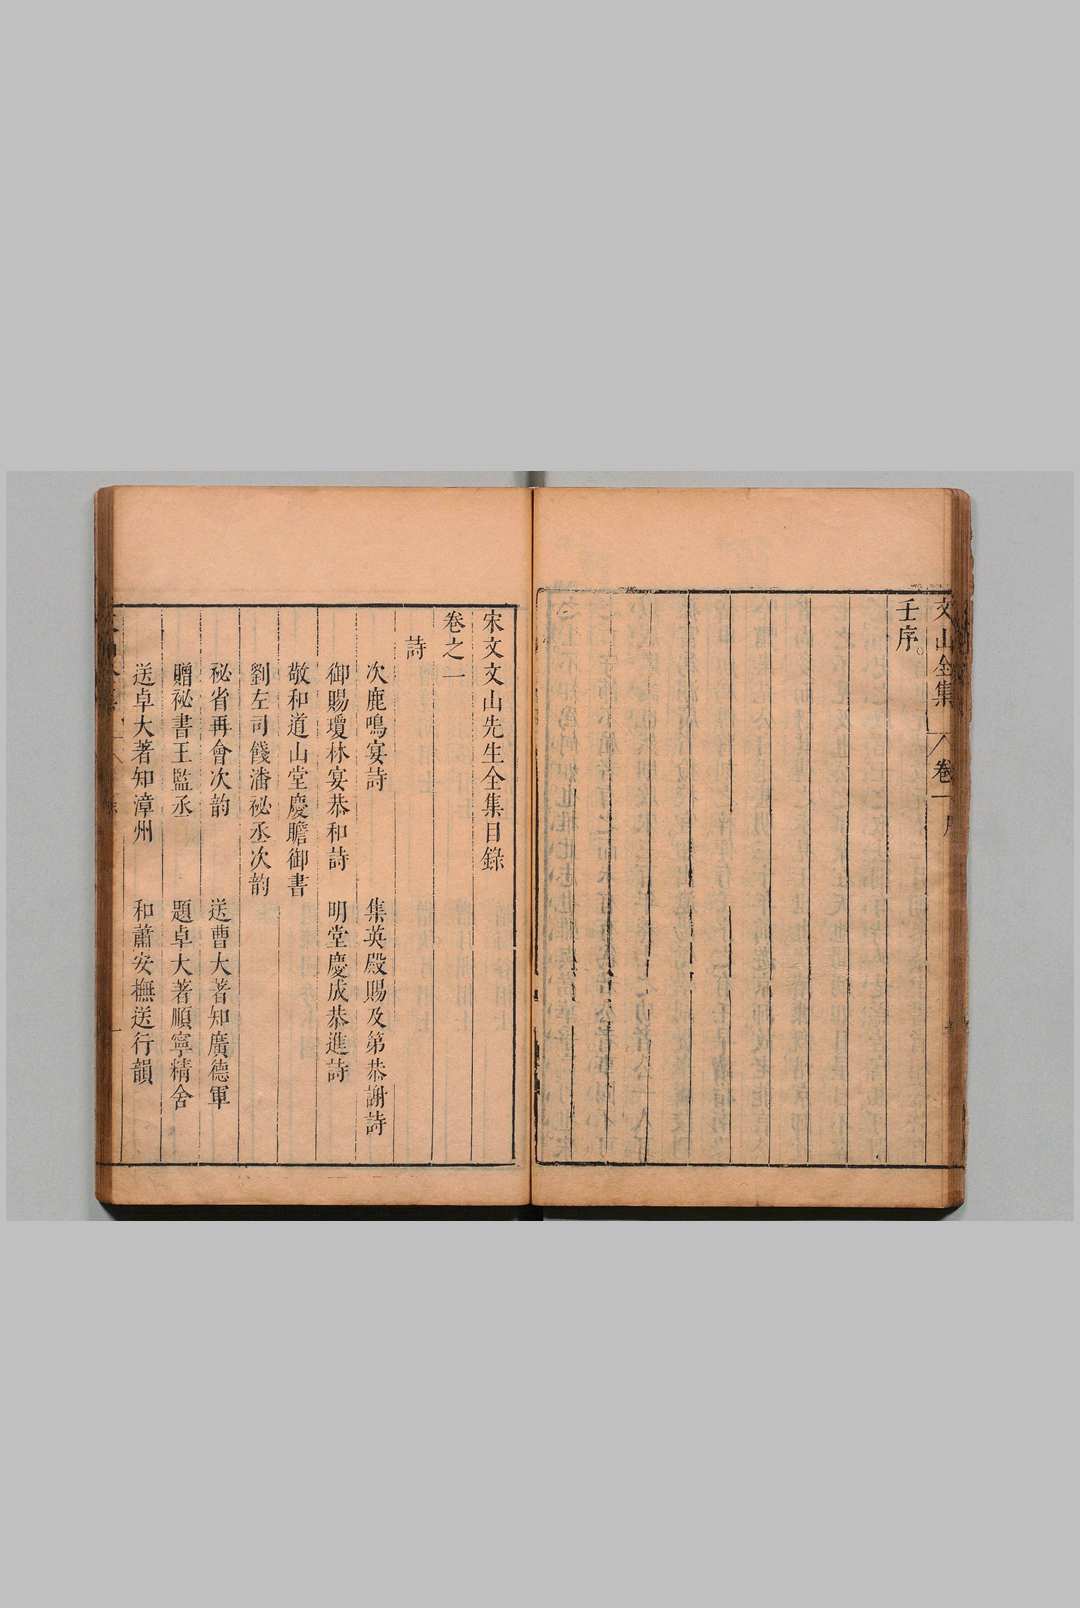 文山全集 卷一
壬序。
宋文文山先生全集目錄
卷之一
詩
次鹿鳴宴詩 集英殿賜及第恭謝詩
御賜瓊林宴恭和詩 明堂慶成恭進詩
敬和道山堂慶瞻御書
劉左司餞潘秘丞次韵
秘省再會次韵 送曹大著知廣德軍
贈秘書王監丞 題卓大著順寧精舍
送卓大著知漳州 和蕭安撫送行韻